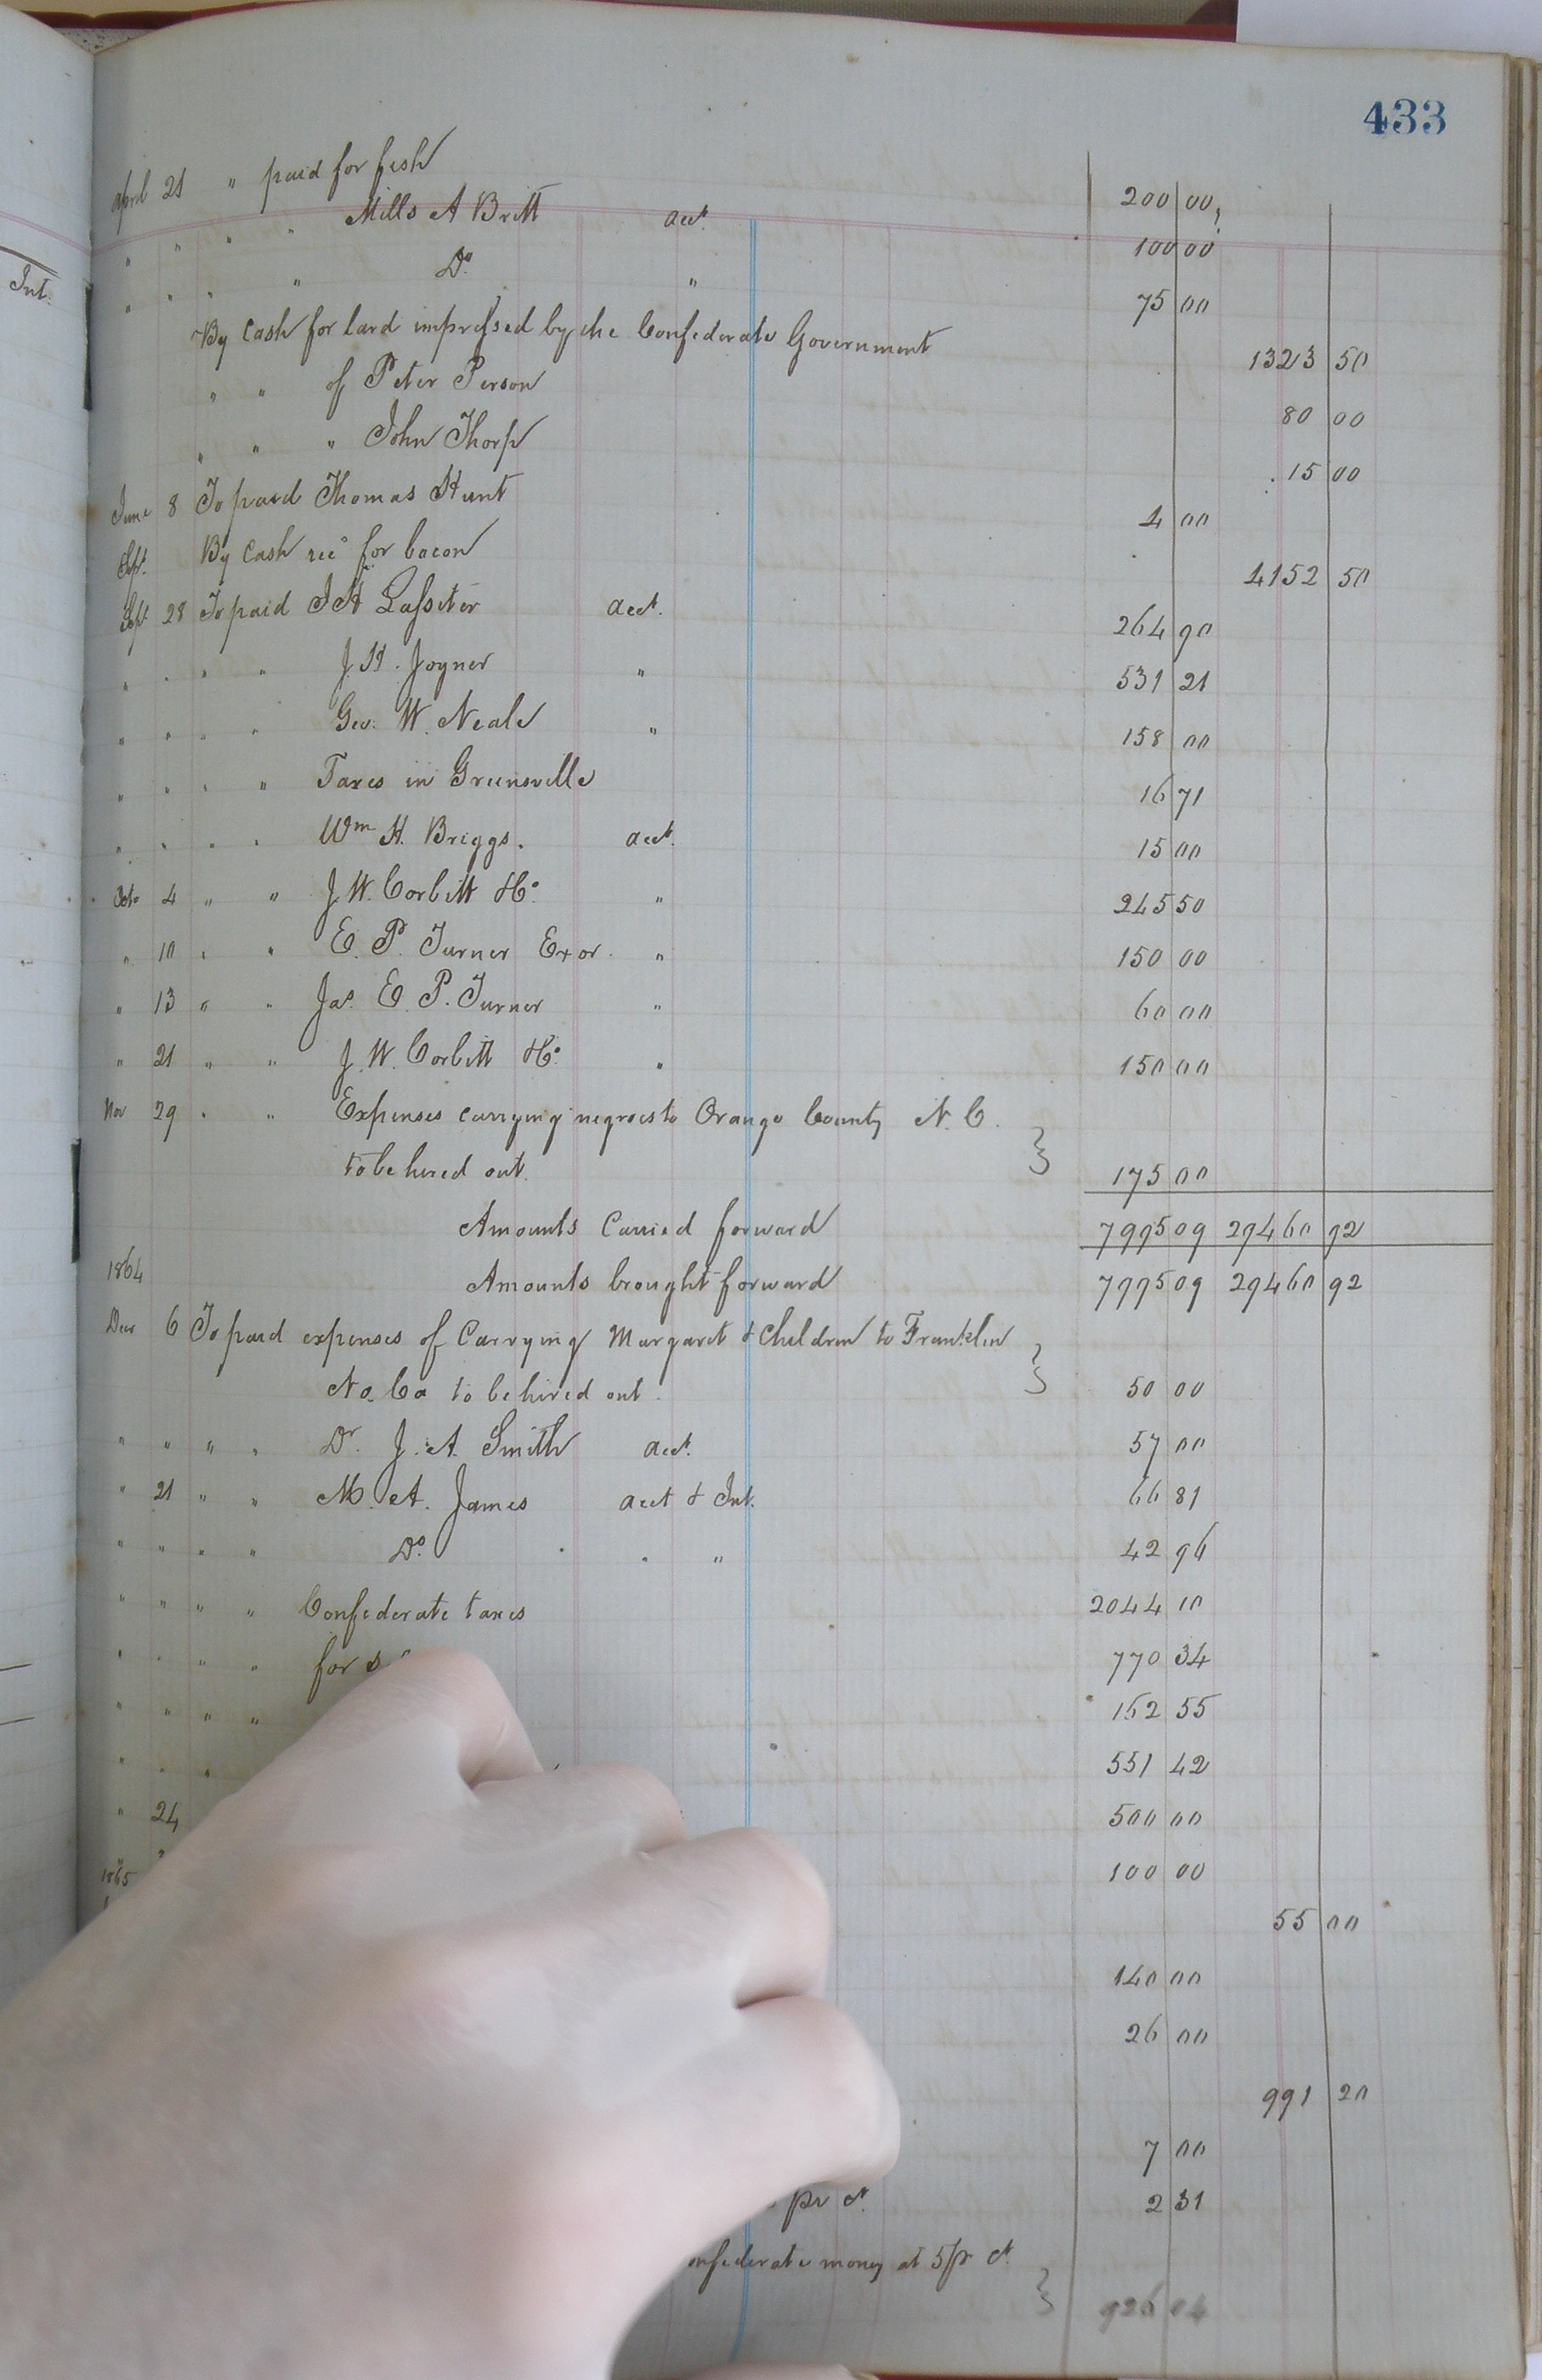 433
Int.
April 21 " paid for fish 200 00
" " " " Mills A Britt acct. 100 00
" " " " Do. " 75 00
By Cash for lard impressed by the Confederate Government 1323 50
" " of Peter Person 80 00
" " " John Thorp 15 00
June 8 To paid Thomas Hunt 4 00
Sept. By Cash rec'd for bacon 4152 50
Sept 28 To paid J H Lassiter acct. 264 90
" " " " J. H. Joyner " 531 21
" " " " Geo. W. Neale " 158 00
" " " " Taxes in Greensville 16 71
" " " " Wm H. Briggs. acct. 15 00
Octo 4 " " J. W. Corbitt & Co. " 245 50
" 10 " " E. P. Turner Exor. " 150 00
" 13 " " Jas. E. P. Turner " 60 00
" 21 " " J. W. Corbitt & Co. " 150 00
Nov 29 " " Expenses carrying negroes to Orange County N. C.
to be hired out. 175 00
Amounts Carried forward 7995 09 29460 92
1864 Amounts brought forward 7995 09 29460 92
Decr 6 To paid expenses of Carrying Margaret & Children to Franklin
No. Ca to be hired out. 50 00
" " " " Dr. J. A. Smith acct. 57 00
" 21 " " M. A. James acct & Int. 66 81
" " " " Do. " " 42 96
" " " " Confederate taxes 2044 10
" " " " for 770 34
" " " " 162 55
" " " 551 42
" 24 500 00
1865 100 00
55 00
140 00
26 00
991 20
7 00
pr ct. 2 31
onfederate money at 5 pr ct.
926 04